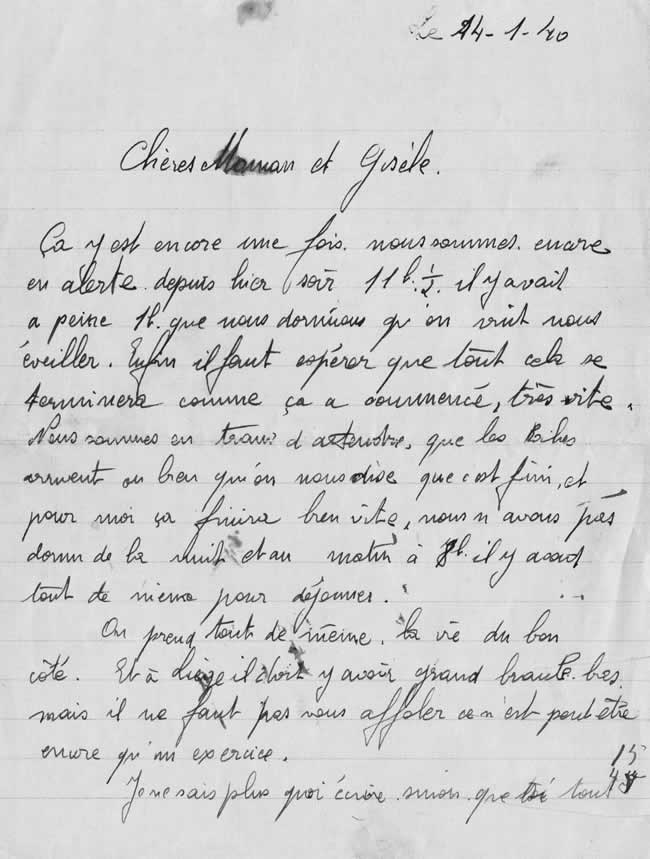 Le 14-1-40
Chères Maman et Gisèle.
Ça y est encore une fois. nous sommes. encore
en alerte. depuis hier soir 11h. 1/2. il y avait
a peine 1h. que nous dormions qu'on vint nous
éveiller. Enfin il faut espérer que tout cela se
terminera comme ça a commencé, très vite.
Nous sommes en train d'attendre, que les Boches
arrivent ou bien qu'on nous dise que c'est fini, et
pour moi ça finira bien vite, nous n'avons pas
dormi de la nuit et au matin à 8h. il y avait
tout de même pour déjeuner.
On prend tout de même. la vie du bon
côté. Et à Liège il doit y avoir grand branle-bas.
mais il ne faut pas vous affoler ce n'est peut être
encore qu'un exercice.
15
Je ne sais plus quoi écrire. sinon. que tout